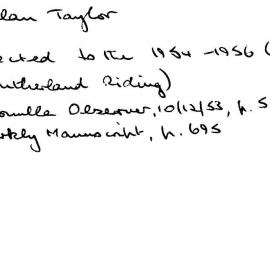 lan Taylor
ected to the 1954-1956 (
utherland Riding)
Observer, 10/12/53, p. 5
kly Manuscript, p. 695